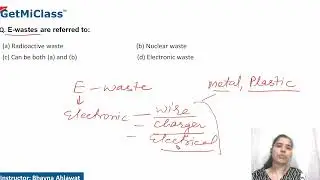 GetMiClass™
Q. E-wastes are referred to:
(a) Radioactive waste (b) Nuclear waste
(c) Can be both (a) and (b) (d) Electronic waste
E - waste
Metal, Plastic
Electronic - wire
- charger
- Electrical
Instructor: Bhavna Ahlawat